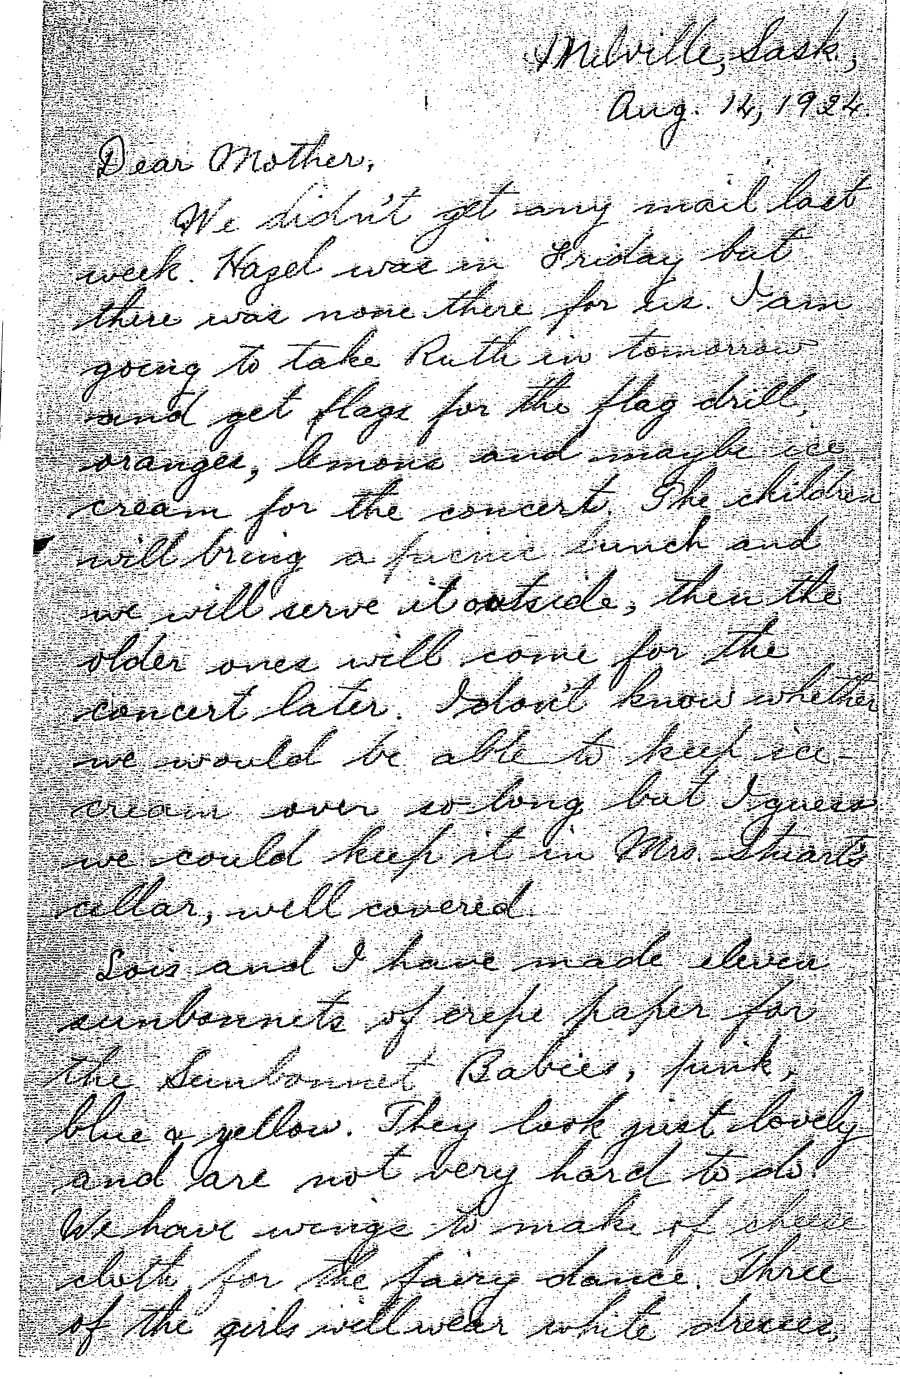 Melville, Sask.,
Aug. 14, 1924.
Dear Mother,
We didn't get any mail last
week. Hazel was in Friday but
there was none there for us. I am
going to take Ruth in tomorrow
and get flags for the flag drill,
oranges, lemons and maybe ice
cream for the concert. The children
will bring a picnic lunch and
we will serve it outside, then the
older ones will come for the
concert later. I don't know whether
we would be able to keep ice-
cream over so long but I guess
we could keep it in Mrs. Stuart's
cellar, well covered.
Lois and I have made eleven
sunbonnets of crepe paper for
the Sunbonnet Babies, pink,
blue & yellow. They look just lovely
and are not very hard to do.
We have wings to make of cheese
cloth for the fairy dance. Three
of the girls will wear white dresses,